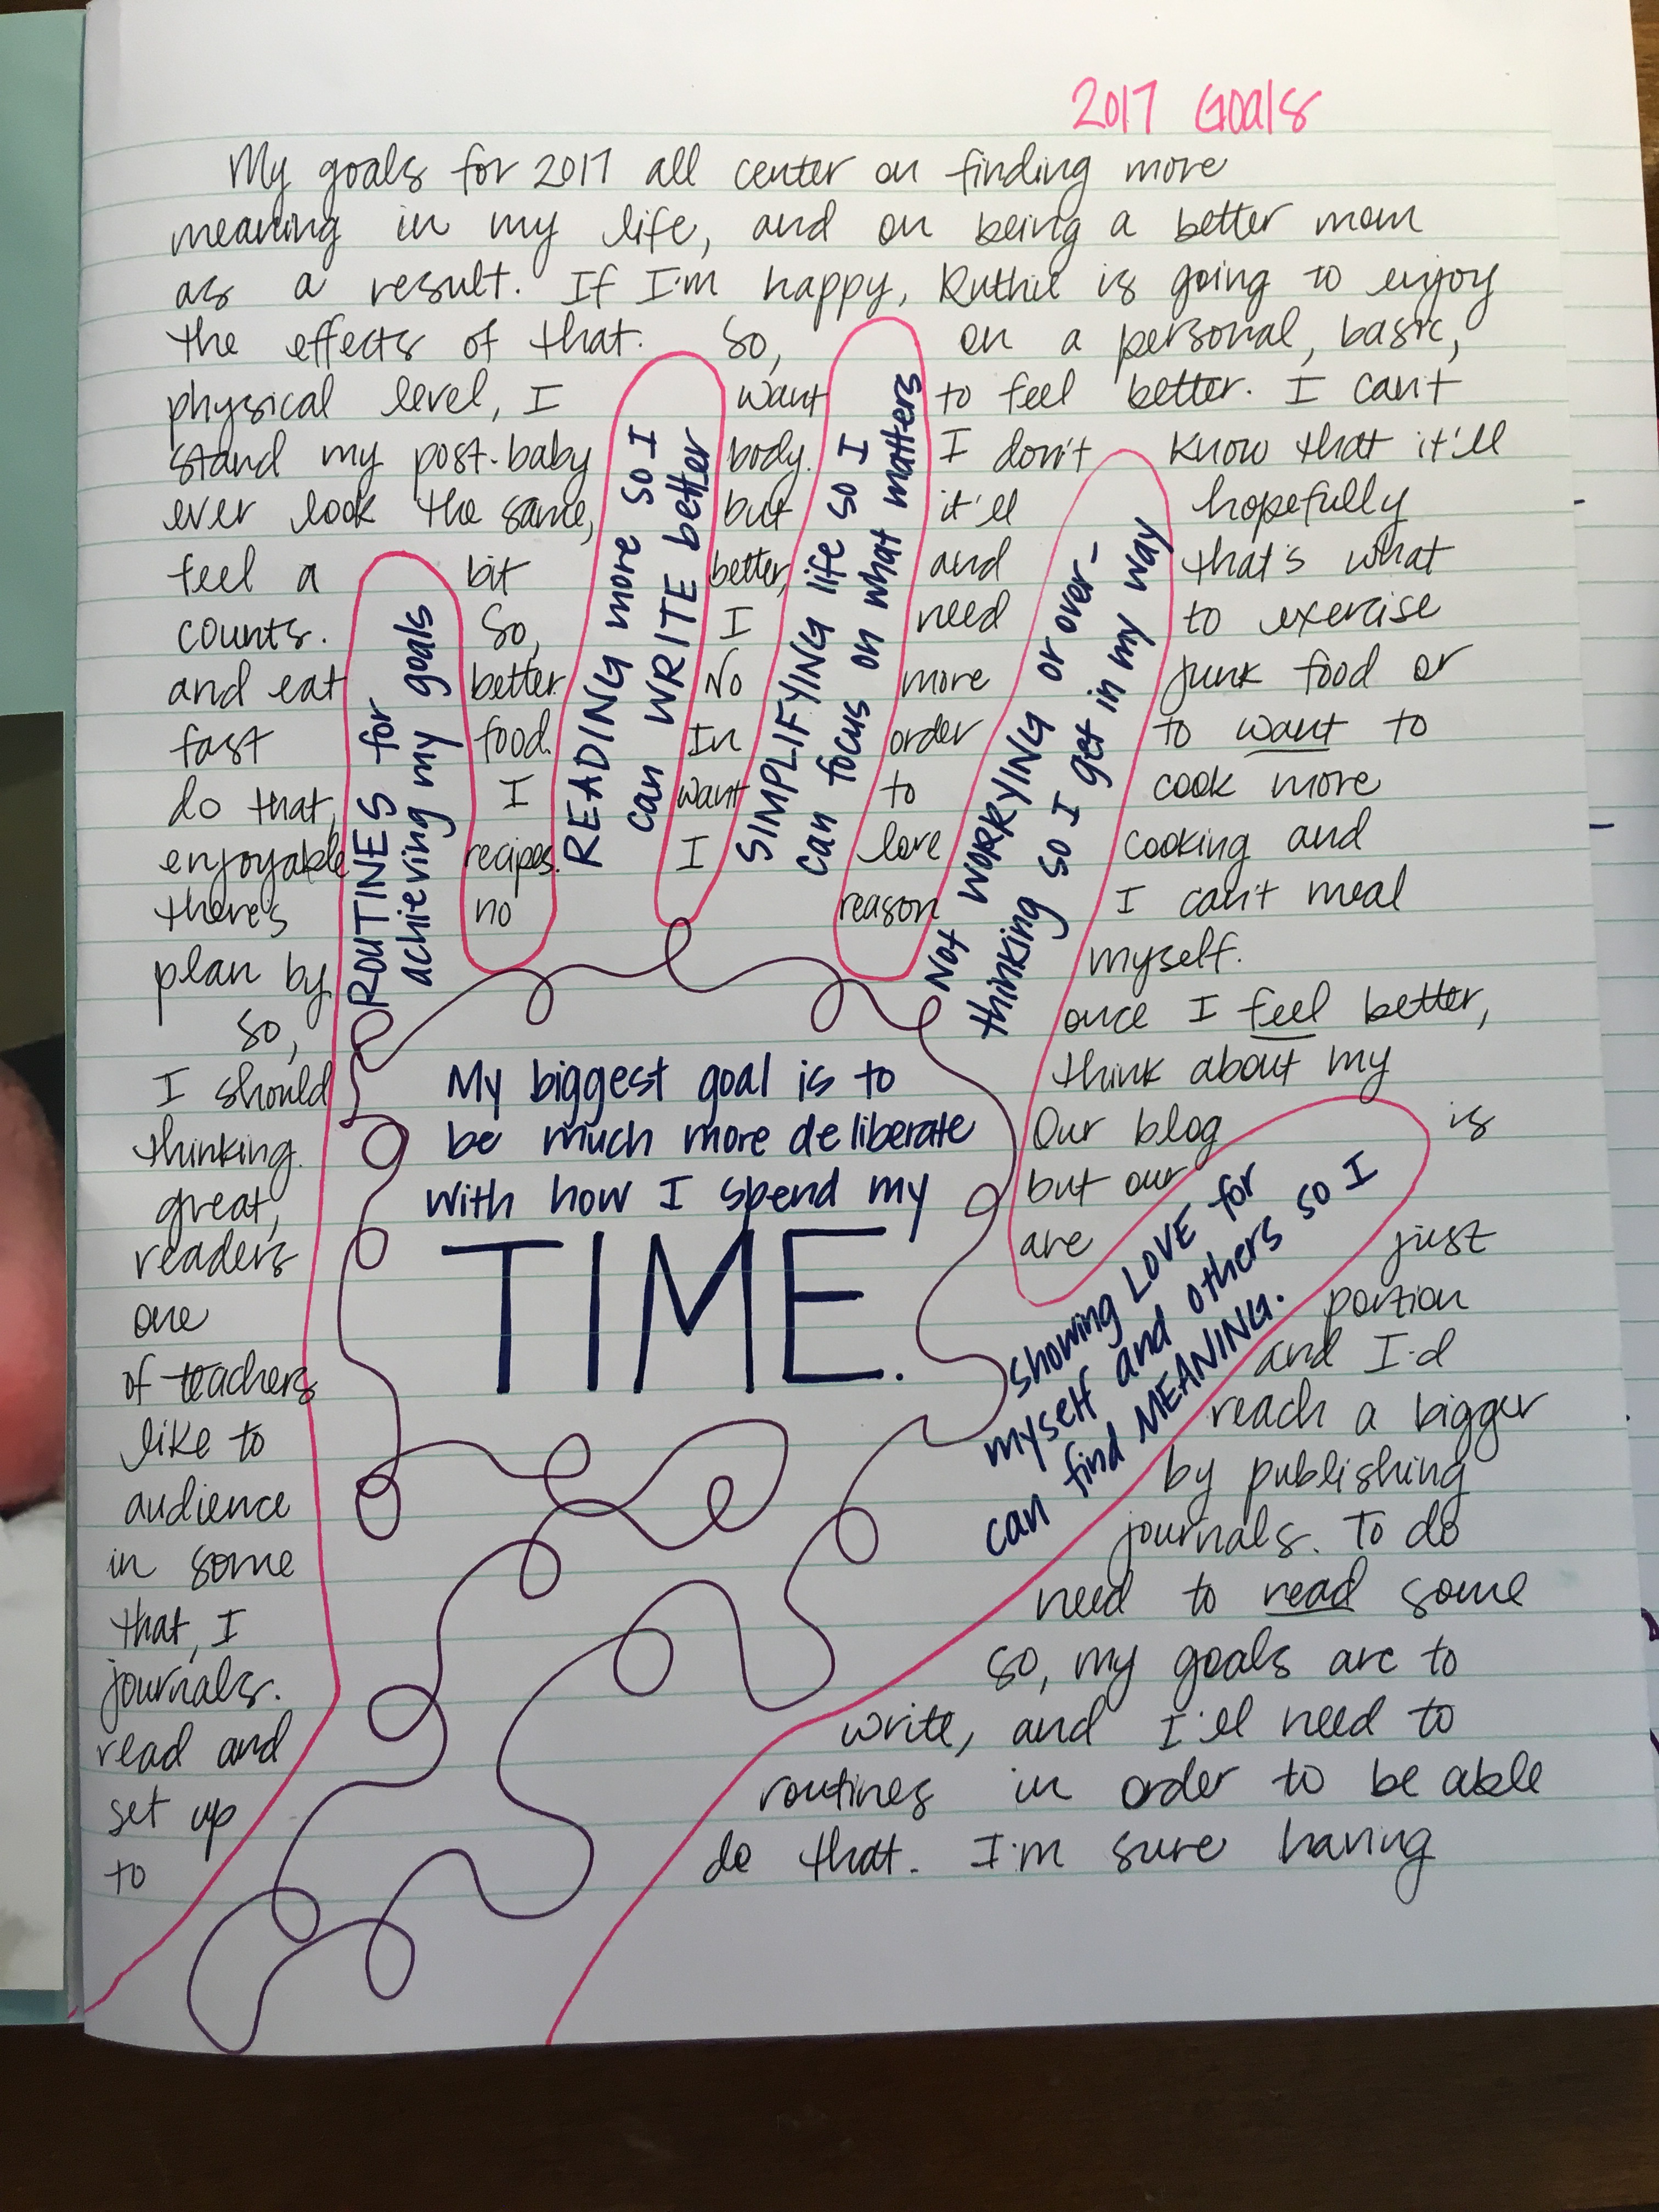 2017 Goals
My goals for 2017 all center on finding more
meaning in my life, and on being a better mom
as a result. If I'm happy, Ruthie is going to enjoy
the effects of that. So, on a personal, basic,
physical level, I want to feel better. I can't
stand my post-baby body. I don't know that it'll
ever look the same, but it'll hopefully
feel a bit better, and that's what
counts. So, I need to exercise
and eat better. No more junk food or
fast food. In order to want to
do that, I want to cook more
enjoyable recipes. I love cooking and
there's no reason I can't meal
plan by myself.
So, once I feel better,
I should think about my
thinking. Our blog is
great, but our
readers are just
one portion
of teachers and I'd
like to reach a bigger
audience by publishing
in some journals. To do
that, I need to read some
journals. So, my goals are to
read and write, and I'll need to
set up routines in order to be able
to do that. I'm sure having
ROUTINES for
achieving my goals
READING more so I
can WRITE better
SIMPLIFYING life so I
can focus on what matters
Not WORRYING or over-
thinking so I get in my way
showing LOVE for
myself and others so I
can find MEANING.
My biggest goal is to
be much more deliberate
with how I spend my
TIME.